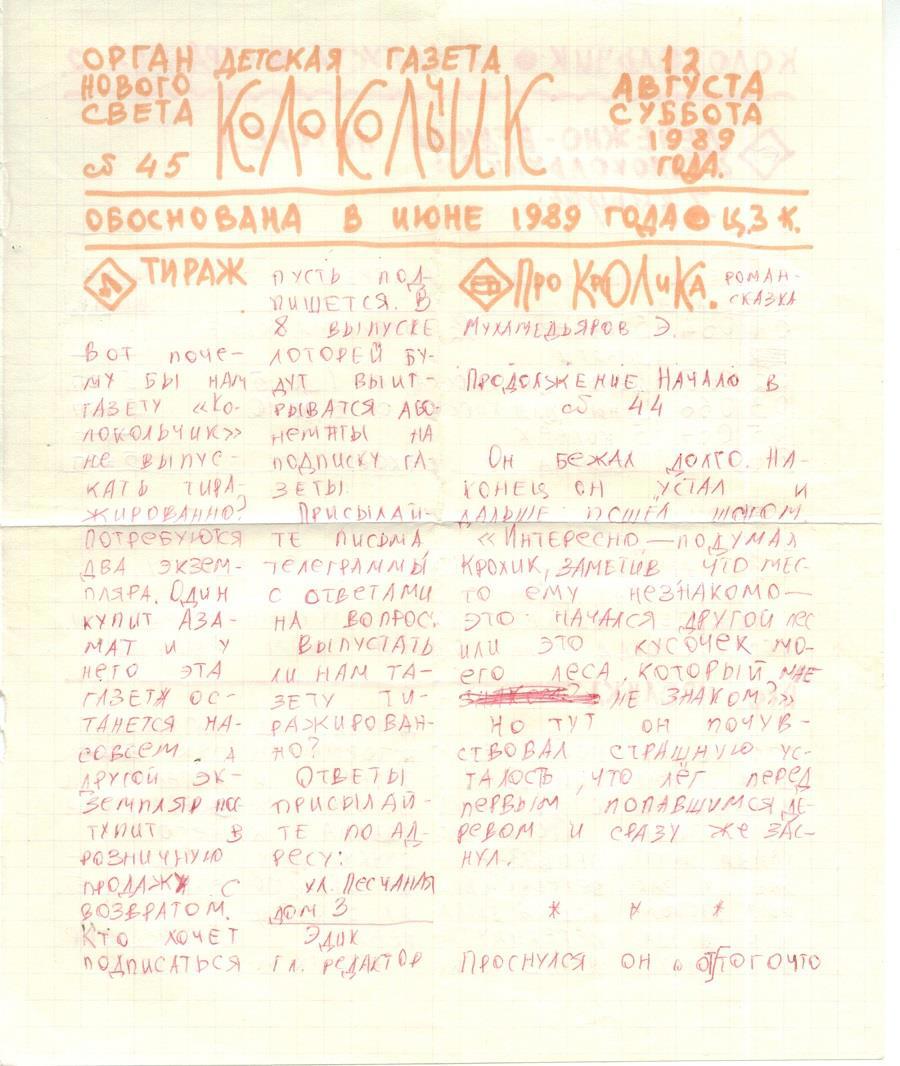 ОРГАН
НОВОГО
СВЕТА
сб 45
ДЕТСКАЯ ГАЗЕТА
КОЛОКОЛЬЧИК
12
АВГУСТА
СУББОТА
1989
ГОДА.
ОБОСНОВАНА В ИЮНЕ 1989 ГОДА Ц.3 К.
ТИРАЖ
ВОТ ПОЧЕ-
МУ БЫ НАМ
ГАЗЕТУ «КО-
ЛОКОЛЬЧИК»
НЕ ВЫПУС-
КАТЬ ТИРА-
ЖИРОВАННО?
ПОТРЕБУЮТСЯ
ДВА ЭКЗЕМ-
ПЛЯРА. ОДИН
КУПИТ АЗА-
МАТ И У
НЕГО ЭТА
ГАЗЕТА ОС-
ТАНЕТСЯ НА-
СОВСЕМ А
ДРУГОЙ ЭК-
ЗЕМПЛЯР ПОС-
ТУПИТ В
РОЗНИЧНУЮ
ПРОДАЖУ С
ВОЗВРАТОМ.
КТО ХОЧЕТ
ПОДПИСАТЬСЯ
ПУСТЬ ПОД-
ПИШЕТСЯ. В
8 ВЫПУСКЕ
ЛОТОРЕЙ БУ-
ДУТ ВЫИГ-
РЫВАТСЯ АБО-
НЕМЕНТЫ НА
ПОДПИСКУ ГА-
ЗЕТЫ.
ПРИСЫЛАЙ-
ТЕ ПИСЬМА,
ТЕЛЕГРАММЫ
С ОТВЕТАМИ
НА ВОПРОС:
ВЫПУСТАТЬ
ЛИ НАМ ГА-
ЗЕТУ ТИ-
РАЖИРОВАН-
НО?
ОТВЕТЫ
ПРИСЫЛАЙ-
ТЕ ПО АД-
РЕСУ:
УЛ. ПЕСЧАНАЯ
ДОМ 3
ЭДИК
ГЛ. РЕДАКТОР
ПРО КРОЛИКА.
РОМАН-
СКАЗКА
МУХАМЕДЬЯРОВ Э.
ПРОДОЛЖЕНИЕ. НАЧАЛО В
сб 44
ОН БЕЖАЛ ДОЛГО. НА-
КОНЕЦ ОН УСТАЛ И
ДАЛЬШЕ ПОШЕЛ ШАГОМ.
«ИНТЕРЕСНО — ПОДУМАЛ
КРОЛИК, ЗАМЕТИВ ЧТО МЕС-
ТО ЕМУ НЕЗНАКОМО —
ЭТО НАЧАЛСЯ ДРУГОЙ ЛЕС
ИЛИ ЭТО КУСОЧЕК МО-
ЕГО ЛЕСА, КОТОРЫЙ МНЕ
НЕ ЗНАКОМ?»
НО ТУТ ОН ПОЧУВ-
СТВОВАЛ СТРАШНУЮ УС-
ТАЛОСТЬ, ЧТО ЛЁГ ПЕРЕД
ПЕРВЫМ ПОПАВШИМСЯ ДЕ-
РЕВОМ И СРАЗУ ЖЕ ЗАС-
НУЛ.
* * *
ПРОСНУЛСЯ ОН ОТ ТОГО ЧТО